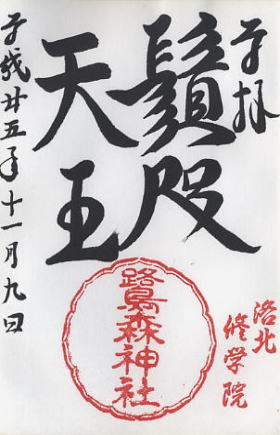 奉拝
洛北
修学院
鬚咫
天王
鷺森神社
平成廿五年十一月九日